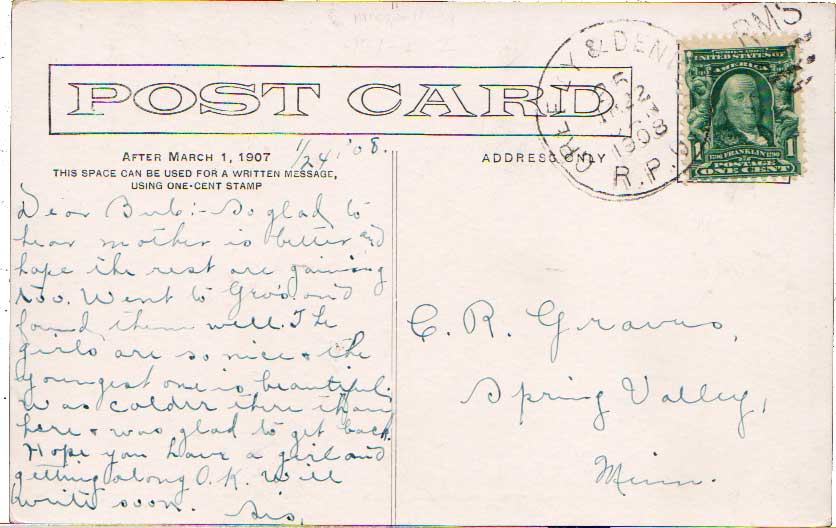 POST CARD
AFTER MARCH 1, 1907
THIS SPACE CAN BE USED FOR A WRITTEN MESSAGE,
USING ONE-CENT STAMP
ADDRESS ONLY
1/24 '08.
Dear Burb:- So glad to
hear mother is better and
hope the rest are gaining
too. Went to Gro's. and
found them well. The
girls are so nice & the
youngest one is beautiful.
Was colder there than
here & was glad to get back.
Hope you have a girl and
getting along O.K. Will
write soon. Sis.
C. R. Graves,
Spring Valley,
Minn.
GREELEY & DENV
25
JAN
1908
R.P.O.
RMS
SERIES 1902
UNITED STATES OF
AMERICA
1706 FRANKLIN 1790
1 POSTAGE 1
ONE CENT